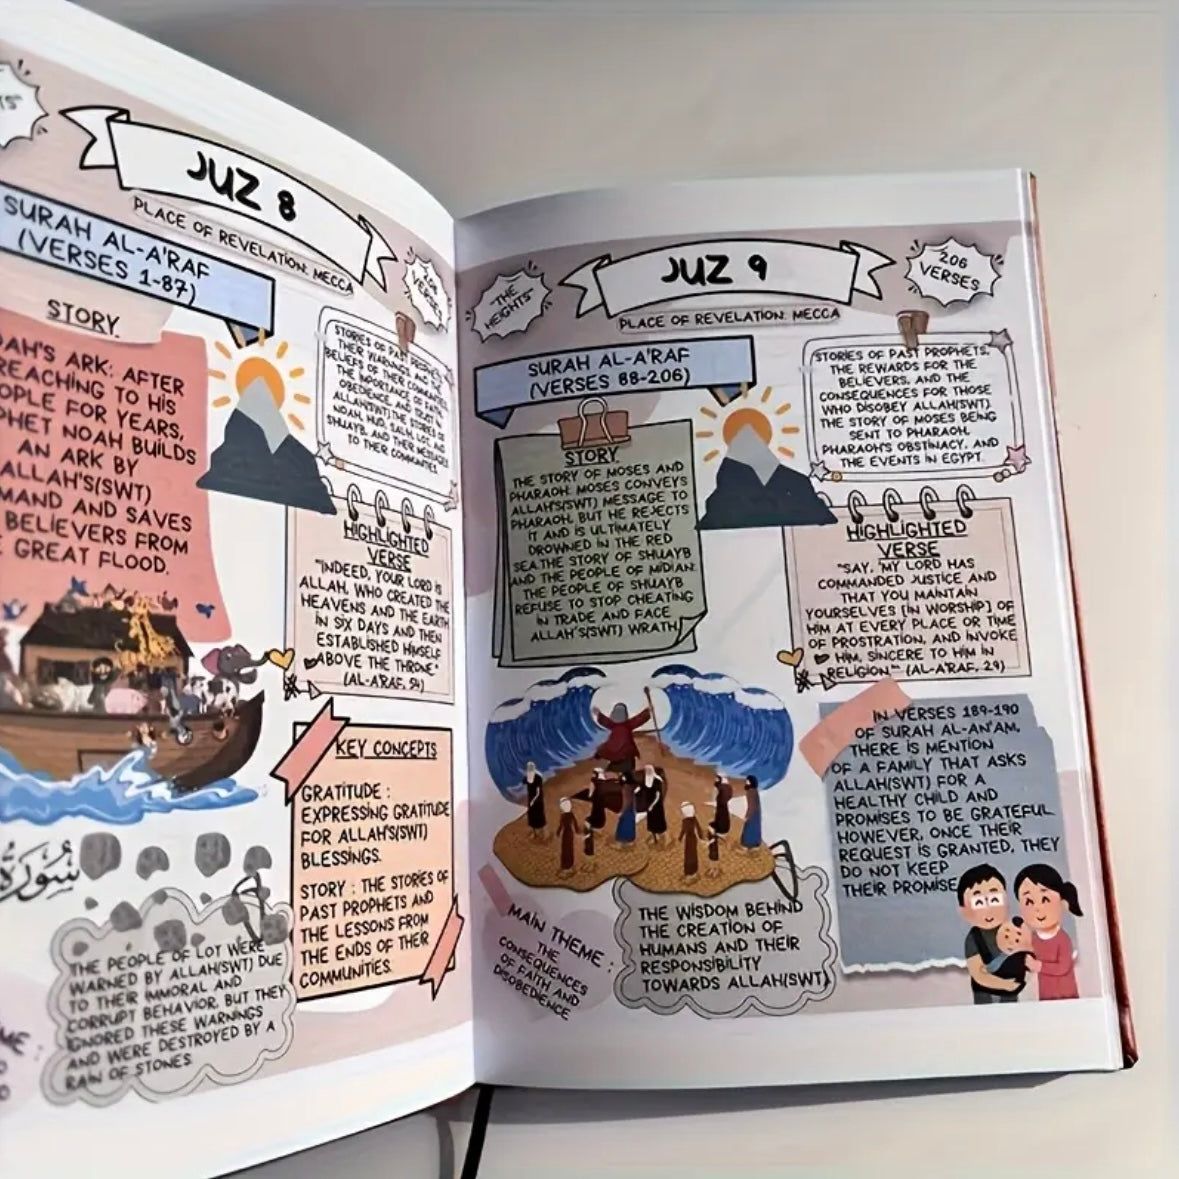 JUZ 8
PLACE OF REVELATION: MECCA
206
VERSES
SURAH AL-A'RAF
(VERSES 1-87)
STORY
AH'S ARK: AFTER
REACHING TO HIS
OPLE FOR YEARS,
PHET NOAH BUILDS
AN ARK BY
ALLAH'S(SWT)
MAND AND SAVES
BELIEVERS FROM
GREAT FLOOD.
STORIES OF PAST PROPHETS,
THEIR WARNINGS, AND THE
BELIEFS OF THEIR COMMUNITIES.
THE IMPORTANCE OF FAITH,
OBEDIENCE, AND TRUST IN
ALLAH(SWT).THE STORIES OF
NOAH, HUD, SALIH, LOT, AND
SHUAYB, AND THEIR MESSAGES
TO THEIR COMMUNITIES.
HIGHLIGHTED
VERSE
"INDEED, YOUR LORD IS
ALLAH, WHO CREATED THE
HEAVENS AND THE EARTH
IN SIX DAYS AND THEN
ESTABLISHED HIMSELF
ABOVE THE THRONE."
(AL-A'RAF, 54)
KEY CONCEPTS
GRATITUDE :
EXPRESSING GRATITUDE
FOR ALLAH'S(SWT)
BLESSINGS.
STORY : THE STORIES OF
PAST PROPHETS AND
THE LESSONS FROM
THE ENDS OF THEIR
COMMUNITIES.
سُورَةُ
THE PEOPLE OF LOT WERE
WARNED BY ALLAH(SWT) DUE
TO THEIR IMMORAL AND
CORRUPT BEHAVIOR, BUT THEY
IGNORED THESE WARNINGS
AND WERE DESTROYED BY A
RAIN OF STONES.
JUZ 9
"THE
HEIGHTS"
206
VERSES
PLACE OF REVELATION: MECCA
SURAH AL-A'RAF
(VERSES 88-206)
STORY
THE STORY OF MOSES AND
PHARAOH: MOSES CONVEYS
ALLAH'S(SWT) MESSAGE TO
PHARAOH, BUT HE REJECTS
IT AND IS ULTIMATELY
DROWNED IN THE RED
SEA.THE STORY OF SHUAYB
AND THE PEOPLE OF MIDIAN:
THE PEOPLE OF SHUAYB
REFUSE TO STOP CHEATING
IN TRADE AND FACE
ALLAH'S(SWT) WRATH.
STORIES OF PAST PROPHETS,
THE REWARDS FOR THE
BELIEVERS, AND THE
CONSEQUENCES FOR THOSE
WHO DISOBEY ALLAH(SWT).
THE STORY OF MOSES BEING
SENT TO PHARAOH,
PHARAOH'S OBSTINACY, AND
THE EVENTS IN EGYPT.
HIGHLIGHTED
VERSE
"SAY, 'MY LORD HAS
COMMANDED JUSTICE AND
THAT YOU MAINTAIN
YOURSELVES [IN WORSHIP] OF
HIM AT EVERY PLACE OR TIME
OF PROSTRATION, AND INVOKE
HIM, SINCERE TO HIM IN
RELIGION.'" (AL-A'RAF, 29)
IN VERSES 189-190
OF SURAH AL-AN'AM,
THERE IS MENTION
OF A FAMILY THAT ASKS
ALLAH(SWT) FOR A
HEALTHY CHILD AND
PROMISES TO BE GRATEFUL.
HOWEVER, ONCE THEIR
REQUEST IS GRANTED, THEY
DO NOT KEEP
THEIR PROMISE.
MAIN THEME :
THE
CONSEQUENCES
OF FAITH AND
DISOBEDIENCE
THE WISDOM BEHIND
THE CREATION OF
HUMANS AND THEIR
RESPONSIBILITY
TOWARDS ALLAH(SWT)